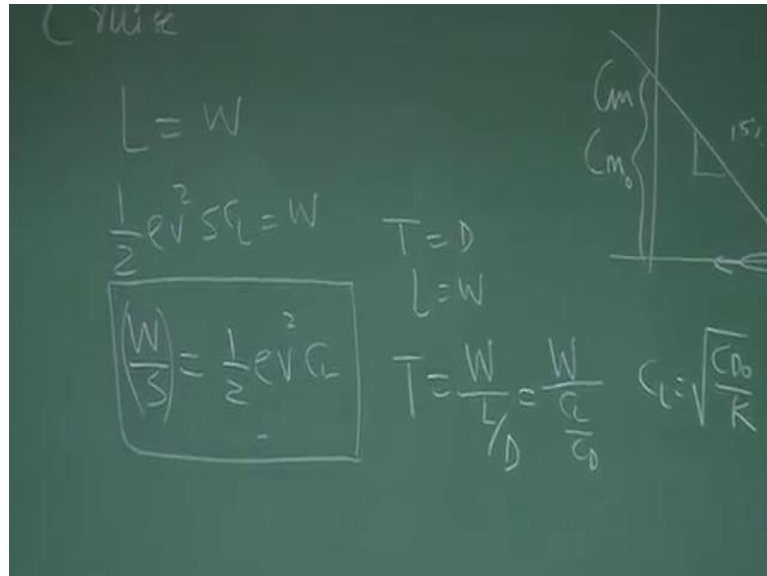 Cruise
L = W
1/2 ρv² S C_L = W
(W/S) = 1/2 ρv² C_L
T = D
L = W
T = W/(L/D) = W/(C_L/C_D)
C_L = √(C_D₀/K)
Cm
Cm₀
15%